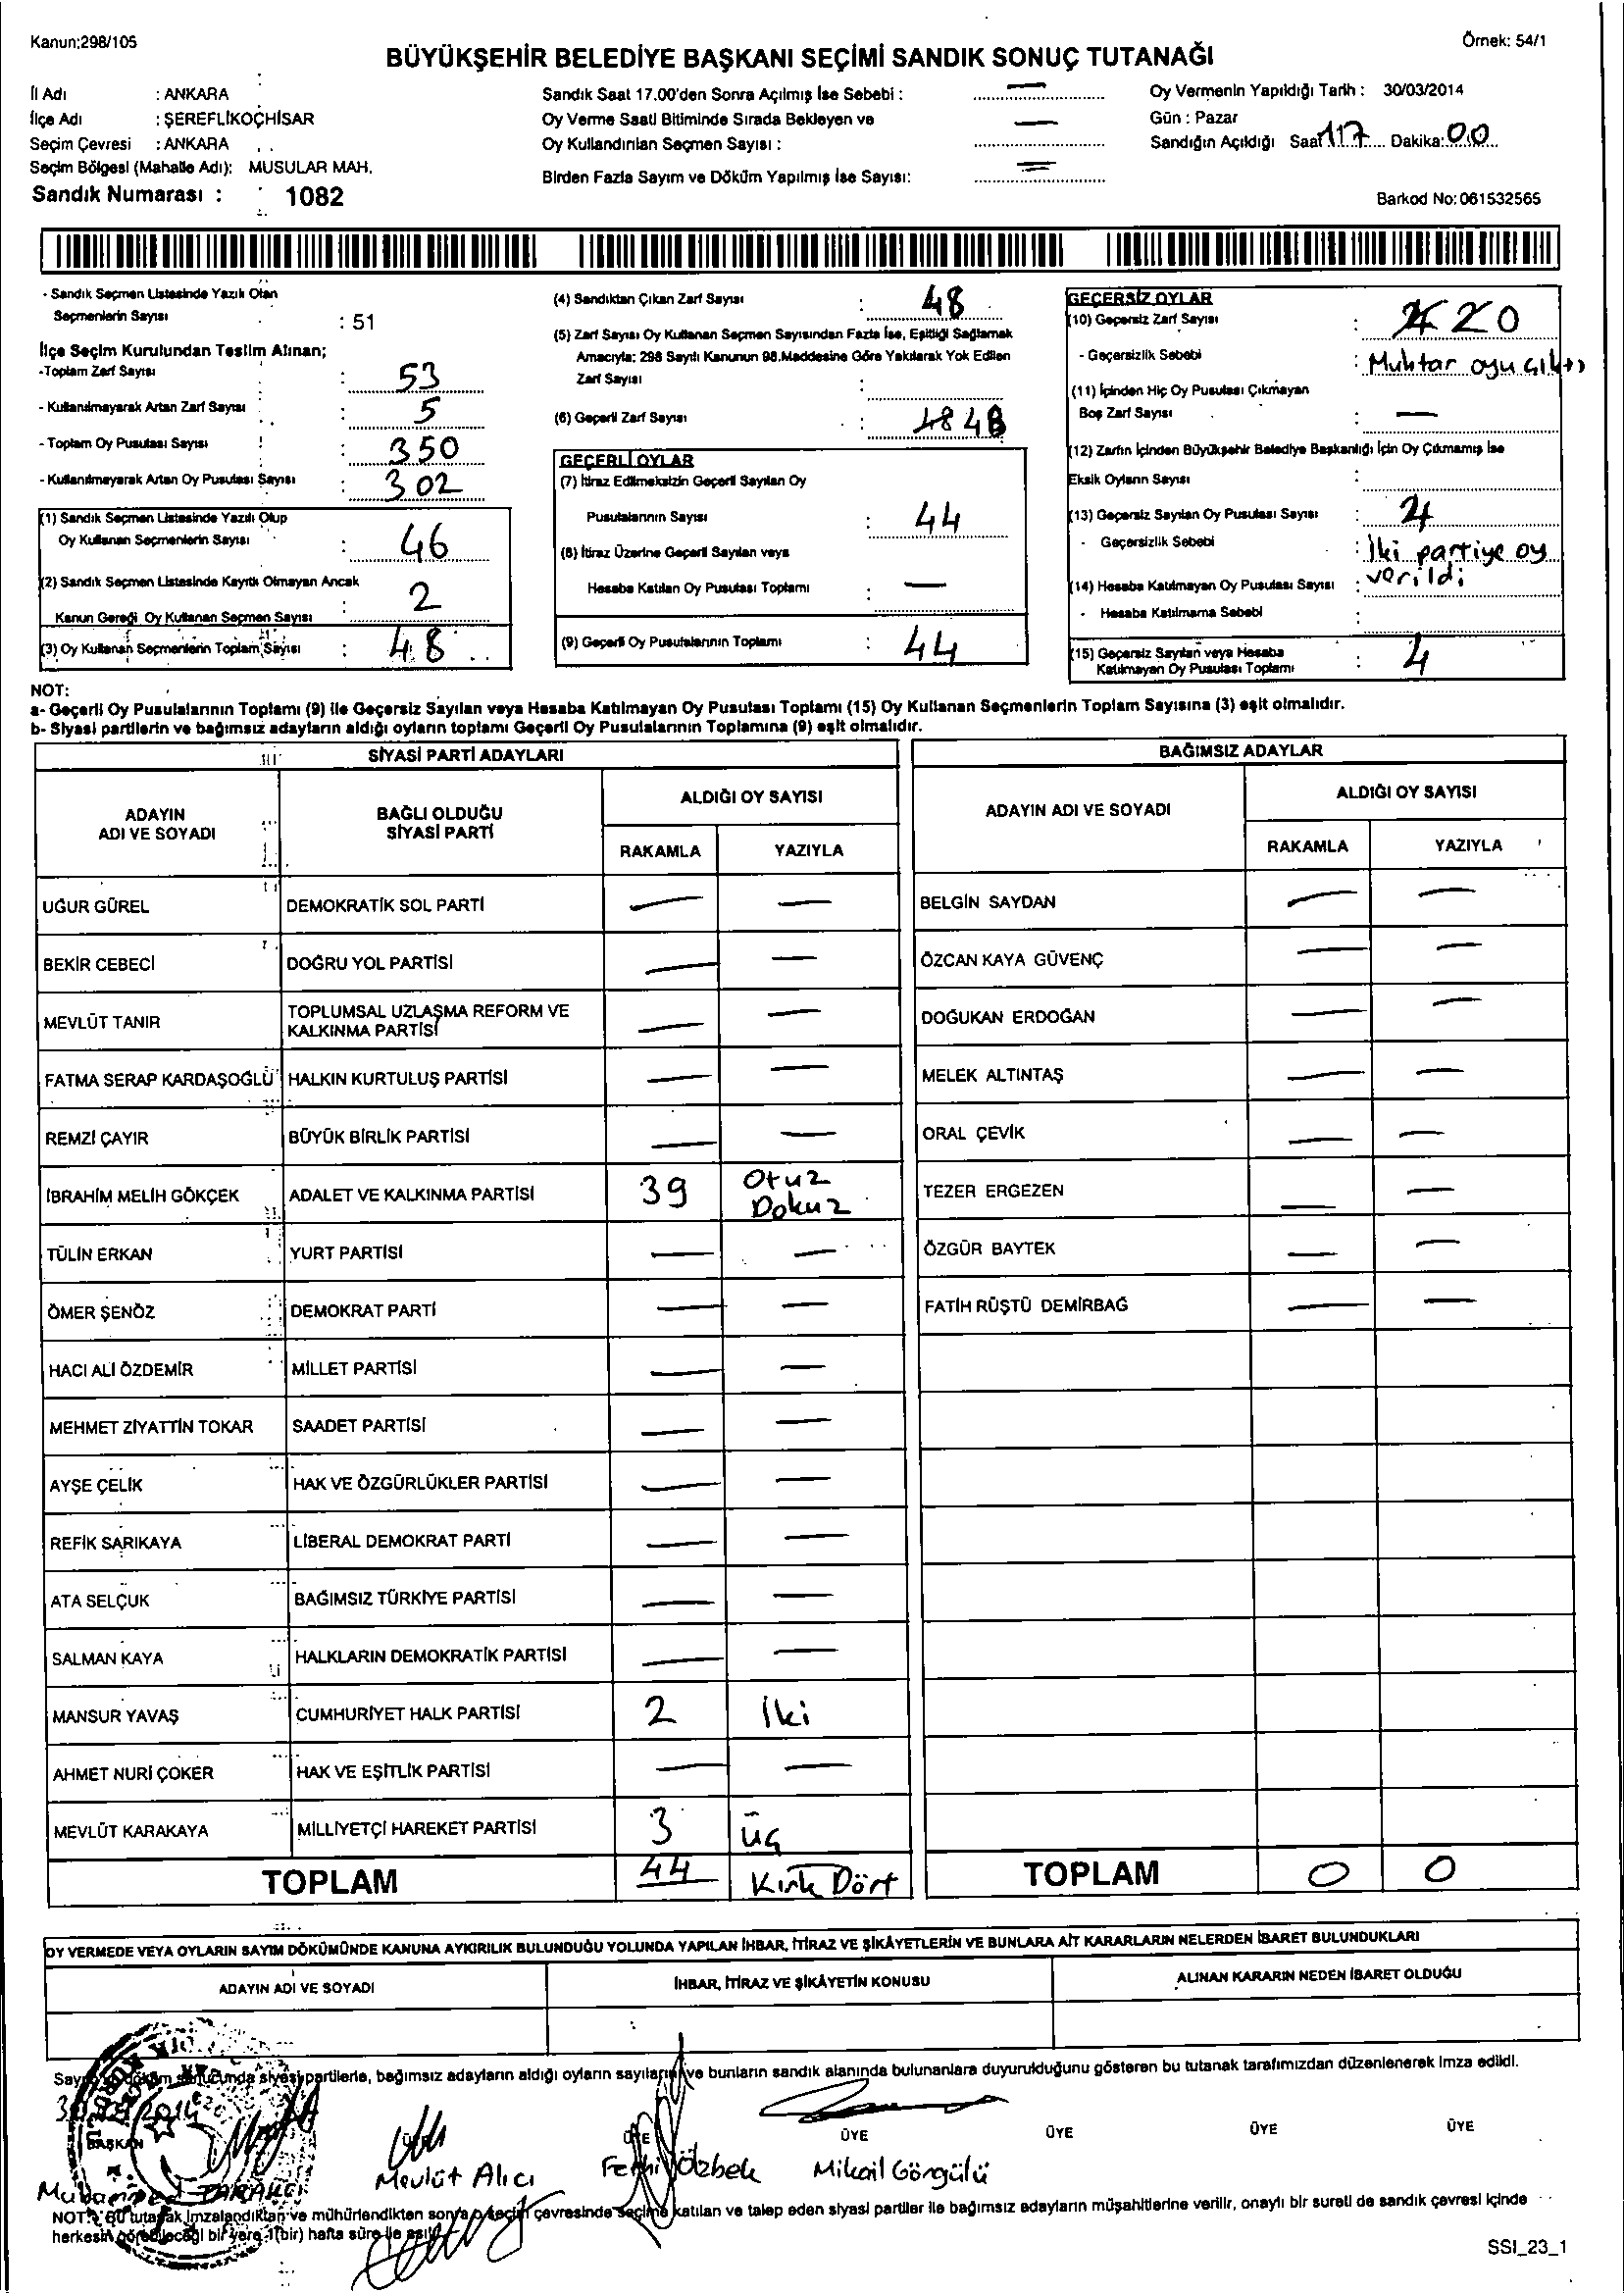 Kanun:298/105
Örnek: 54/1
BÜYÜKŞEHİR BELEDİYE BAŞKANI SEÇİMİ SANDIK SONUÇ TUTANAĞI
İl Adı : ANKARA
İlçe Adı : ŞEREFLİKOÇHİSAR
Seçim Çevresi : ANKARA
Seçim Bölgesi (Mahalle Adı): MUSULAR MAH.
Sandık Numarası : 1082
Sandık Saat 17.00'den Sonra Açılmış İse Sebebi : —
Oy Verme Saati Bitiminde Sırada Bekleyen ve
Oy Kullandırılan Seçmen Sayısı : —
Birden Fazla Sayım ve Döküm Yapılmış İse Sayısı: —
Oy Vermenin Yapıldığı Tarih : 30/03/2014
Gün : Pazar
Sandığın Açıldığı Saat 17 Dakika: 00
Barkod No: 061532565
- Sandık Seçmen Listesinde Yazılı Olan
Seçmenlerin Sayısı : 51
İlçe Seçim Kurulundan Teslim Alınan;
-Toplam Zarf Sayısı : 53
- Kullanılmayarak Artan Zarf Sayısı : 5
- Toplam Oy Pusulası Sayısı : 350
- Kullanılmayarak Artan Oy Pusulası Sayısı : 302
(1) Sandık Seçmen Listesinde Yazılı Olup
Oy Kullanan Seçmenlerin Sayısı : 46
(2) Sandık Seçmen Listesinde Kayıtlı Olmayan Ancak
Kanun Gereği Oy Kullanan Seçmen Sayısı : 2
(3) Oy Kullanan Seçmenlerin Toplam Sayısı : 48
(4) Sandıktan Çıkan Zarf Sayısı : 48
(5) Zarf Sayısı Oy Kullanan Seçmen Sayısından Fazla İse, Eşitliği Sağlamak
Amacıyla; 298 Sayılı Kanunun 98.Maddesine Göre Yakılarak Yok Edilen
Zarf Sayısı :
(6) Geçerli Zarf Sayısı : 48 48
GEÇERLİ OYLAR
(7) İtiraz Edilmeksizin Geçerli Sayılan Oy
Pusulalarının Sayısı : 44
(8) İtiraz Üzerine Geçerli Sayılan veya
Hesaba Katılan Oy Pusulası Toplamı : —
(9) Geçerli Oy Pusulalarının Toplamı : 44
GEÇERSİZ OYLAR
(10) Geçersiz Zarf Sayısı : 0
- Geçersizlik Sebebi : Muhtar oyu çıktı
(11) İçinden Hiç Oy Pusulası Çıkmayan
Boş Zarf Sayısı : —
(12) Zarfın İçinden Büyükşehir Belediye Başkanlığı İçin Oy Çıkmamış İse
Eksik Oyların Sayısı :
(13) Geçersiz Sayılan Oy Pusulası Sayısı : 4
- Geçersizlik Sebebi : İki partiye oy
verildi
(14) Hesaba Katılmayan Oy Pusulası Sayısı :
- Hesaba Katılmama Sebebi :
(15) Geçersiz Sayılan veya Hesaba
Katılmayan Oy Pusulası Toplamı : 4
NOT:
a- Geçerli Oy Pusulalarının Toplamı (9) ile Geçersiz Sayılan veya Hesaba Katılmayan Oy Pusulası Toplamı (15) Oy Kullanan Seçmenlerin Toplam Sayısına (3) eşit olmalıdır.
b- Siyasi partilerin ve bağımsız adayların aldığı oyların toplamı Geçerli Oy Pusulalarının Toplamına (9) eşit olmalıdır.
SİYASİ PARTİ ADAYLARI
ADAYIN ADI VE SOYADI BAĞLI OLDUĞU SİYASİ PARTİ ALDIĞI OY SAYISI
RAKAMLA YAZIYLA
UĞUR GÜREL DEMOKRATİK SOL PARTİ — —
BEKİR CEBECİ DOĞRU YOL PARTİSİ — —
MEVLÜT TANIR TOPLUMSAL UZLAŞMA REFORM VE KALKINMA PARTİSİ — —
FATMA SERAP KARDAŞOĞLU HALKIN KURTULUŞ PARTİSİ — —
REMZİ ÇAYIR BÜYÜK BİRLİK PARTİSİ — —
İBRAHİM MELİH GÖKÇEK ADALET VE KALKINMA PARTİSİ 39 Otuz Dokuz
TÜLİN ERKAN YURT PARTİSİ — —
ÖMER ŞENÖZ DEMOKRAT PARTİ — —
HACI ALİ ÖZDEMİR MİLLET PARTİSİ — —
MEHMET ZİYATTİN TOKAR SAADET PARTİSİ — —
AYŞE ÇELİK HAK VE ÖZGÜRLÜKLER PARTİSİ — —
REFİK SARIKAYA LİBERAL DEMOKRAT PARTİ — —
ATA SELÇUK BAĞIMSIZ TÜRKİYE PARTİSİ — —
SALMAN KAYA HALKLARIN DEMOKRATİK PARTİSİ — —
MANSUR YAVAŞ CUMHURİYET HALK PARTİSİ 2 İki
AHMET NURİ ÇOKER HAK VE EŞİTLİK PARTİSİ — —
MEVLÜT KARAKAYA MİLLİYETÇİ HAREKET PARTİSİ 3 üç
TOPLAM 44 Kırk Dört
BAĞIMSIZ ADAYLAR
ADAYIN ADI VE SOYADI ALDIĞI OY SAYISI
RAKAMLA YAZIYLA
BELGİN SAYDAN — —
ÖZCAN KAYA GÜVENÇ — —
DOĞUKAN ERDOĞAN — —
MELEK ALTINTAŞ — —
ORAL ÇEVİK — —
TEZER ERGEZEN — —
ÖZGÜR BAYTEK — —
FATİH RÜŞTÜ DEMİRBAĞ — —
TOPLAM 0 0
OY VERMEDE VEYA OYLARIN SAYIM DÖKÜMÜNDE KANUNA AYKIRILIK BULUNDUĞU YOLUNDA YAPILAN İHBAR, İTİRAZ VE ŞİKÂYETLERİN VE BUNLARA AİT KARARLARIN NELERDEN İBARET BULUNDUKLARI
ADAYIN ADI VE SOYADI İHBAR, İTİRAZ VE ŞİKÂYETİN KONUSU ALINAN KARARIN NEDEN İBARET OLDUĞU
Sayım ve döküm sonucunda siyasi partilerle, bağımsız adayların aldığı oyların sayılarını ve bunların sandık alanında bulunanlara duyurulduğunu gösteren bu tutanak tarafımızdan düzenlenerek imza edildi.
BAŞKAN ÜYE ÜYE ÜYE ÜYE ÜYE ÜYE
Mevlüt Alıcı Fethi Özbek Mikail Görgülü
NOT: Bu tutanak imzalandıktan ve mühürlendikten sonra seçim çevresinde seçime katılan ve talep eden siyasi partiler ile bağımsız adayların müşahitlerine verilir, onaylı bir sureti de sandık çevresi içinde
herkesin görebileceği bir yere 1(bir) hafta süre ile asılır.
SSI_23_1